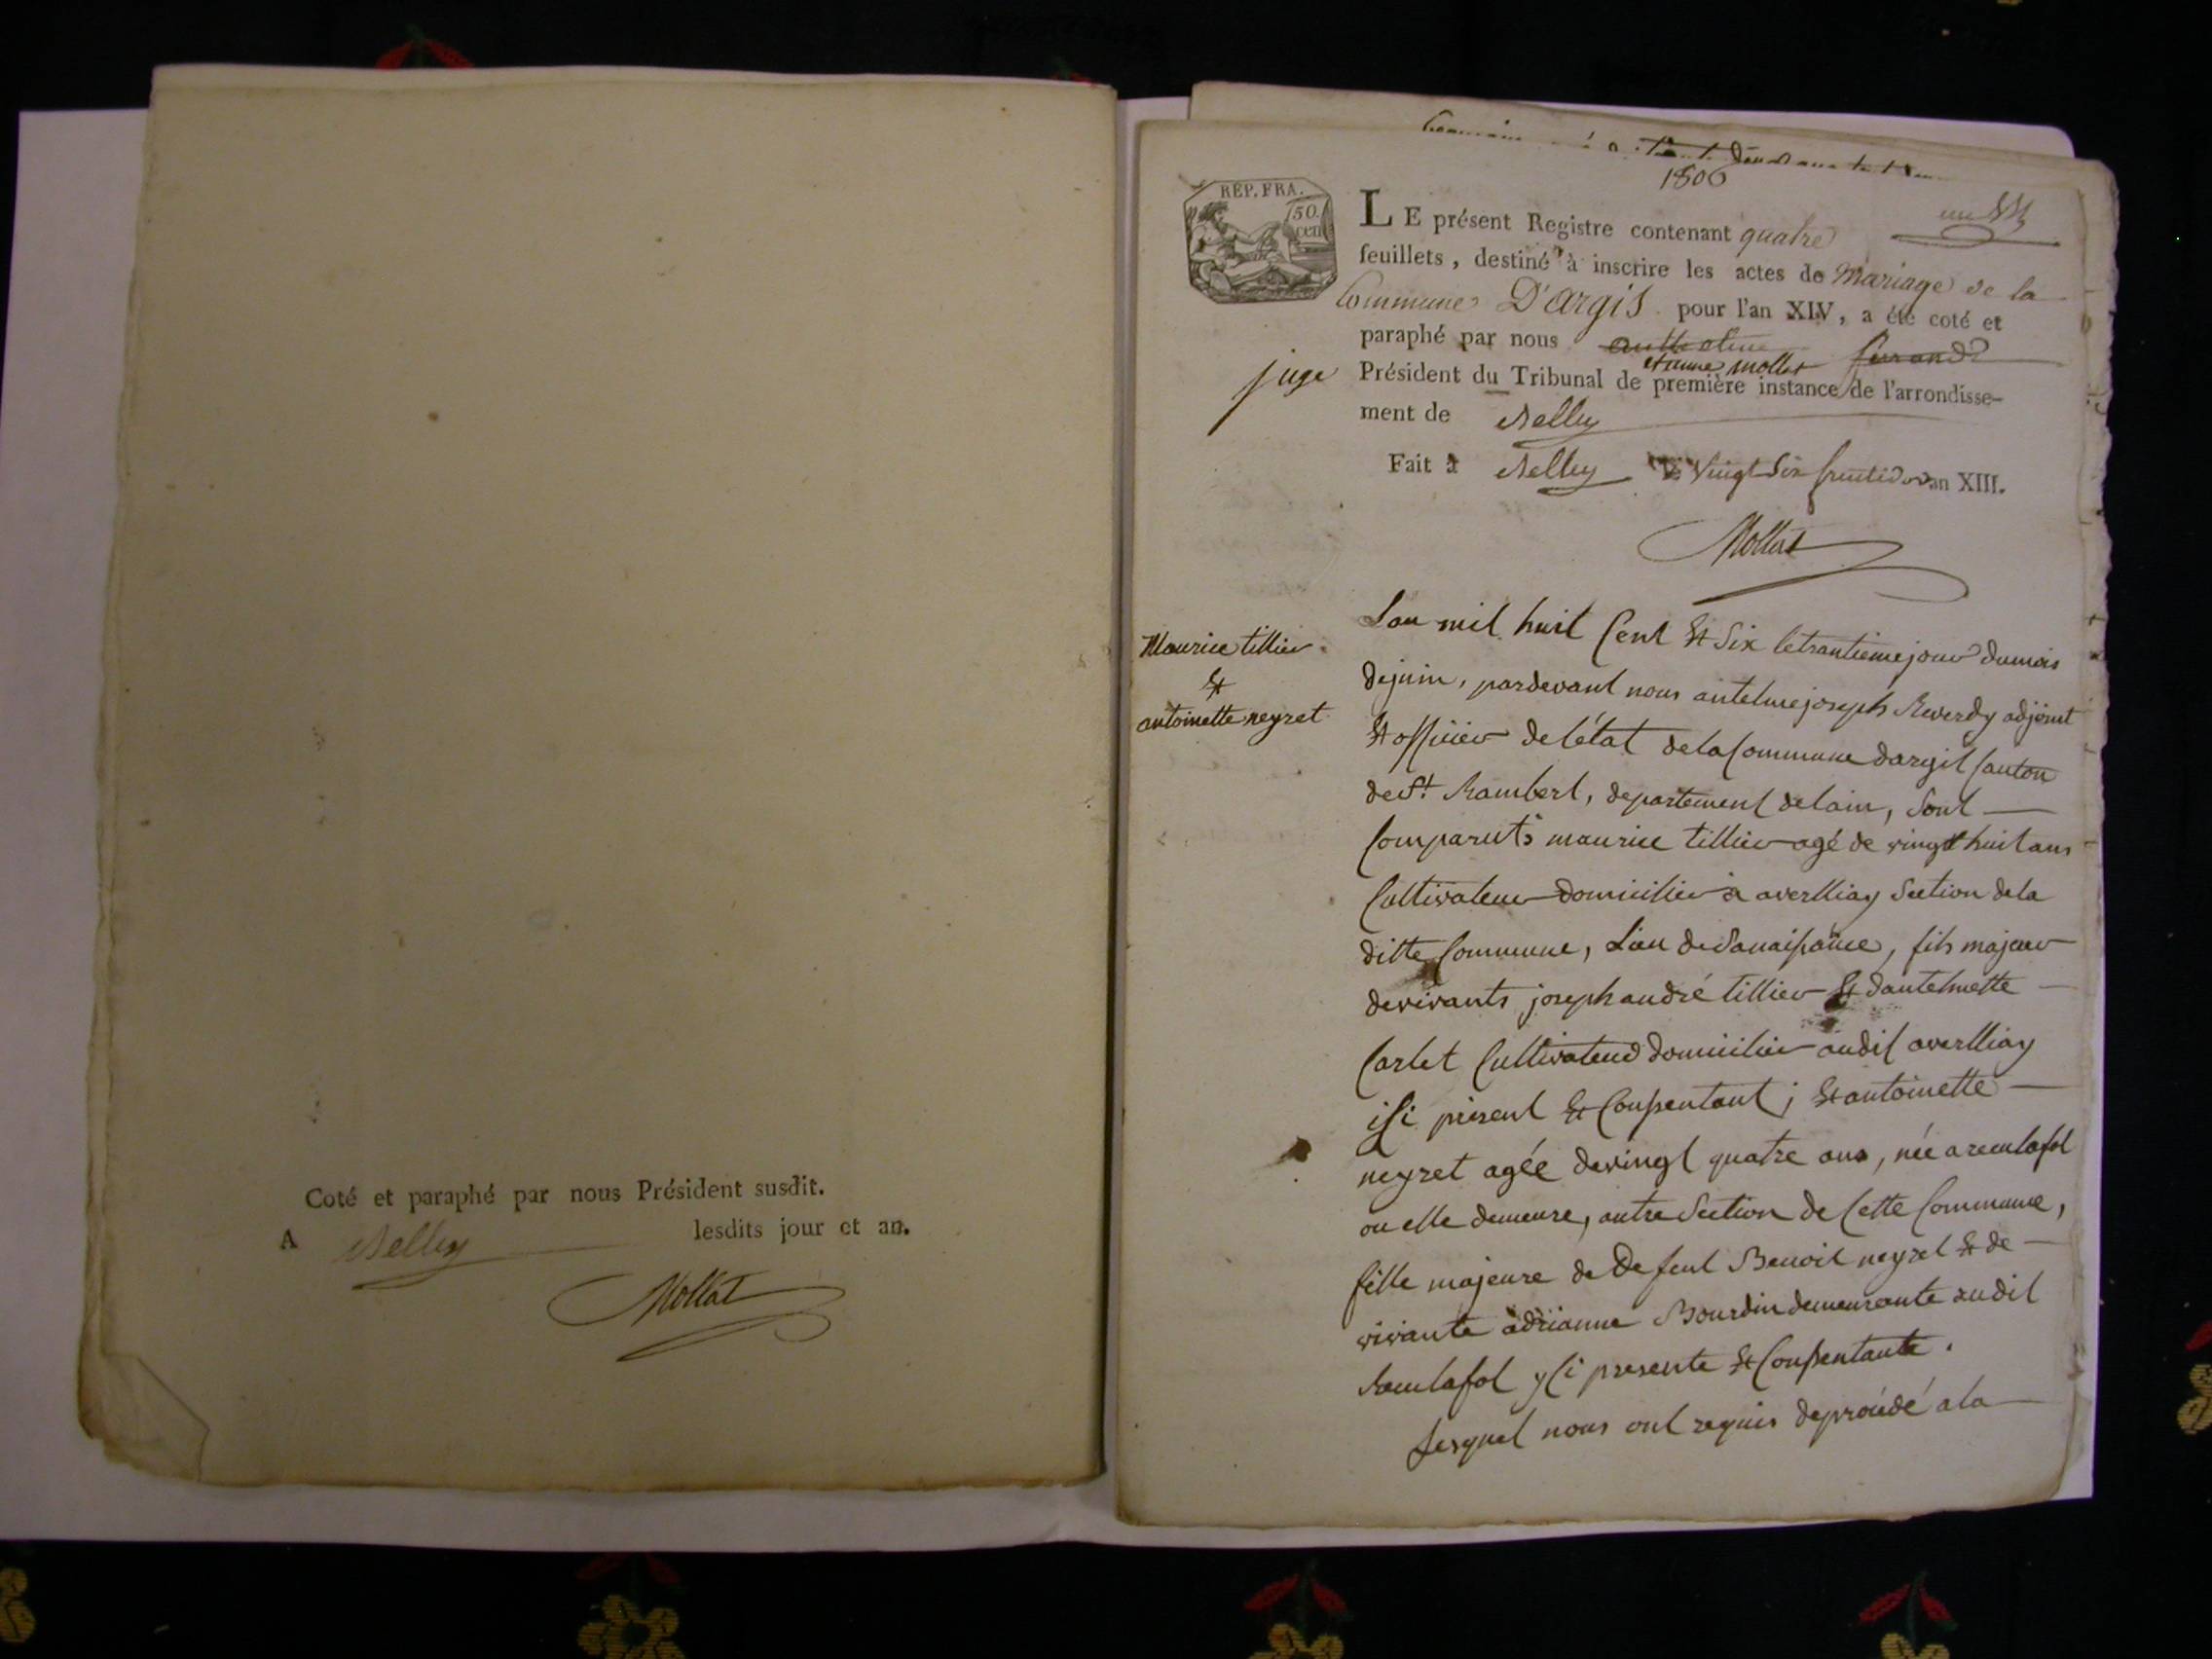 Coté et paraphé par nous Président susdit.
A Belley lesdits jour et an.
Mollat
1806
REP. FRA.
50.
cen
LE présent Registre contenant quatre
feuillets, destiné à inscrire les actes de Mariage de la
Commune D'argis pour l'an XIV, a été coté et
paraphé par nous anthelme ferrand
etienne mollet
juge Président du Tribunal de première instance de l'arrondisse-
ment de Belley
Fait à Belley le Vingt Six fructidor an XIII.
Mollat
Maurice tillier
&
antoinette neyret
L'an mil huit Cent & Six letrantieme jour dumois
dejuin, pardevant nous antelme joseph Reverdy adjoint
& officier de l'état dela Commune dargis Canton
de St. Rambert, departement delain, Sont
Comparuts maurice tillier agé de vingt huit ans
Cultivateur domicilier a averlliay Section dela
ditte Commune, Lieu de Sanaissance, fils majeur
devivants joseph andré tillier & dantelmette
Carlet Cultivateur domicilier audit averlliay
iCi present & Consentant ; & antoinette
neyret agée devingt quatre ans, née a reculafol
ou elle demeure, autre Section de Cette Commune,
fille majeure de De feut Benoit neyret & de
vivante adrianne Bourdin demeurante audit
Reculafol yCi presente & Consentante.
Lesquel nous ont requis deprocédé a la